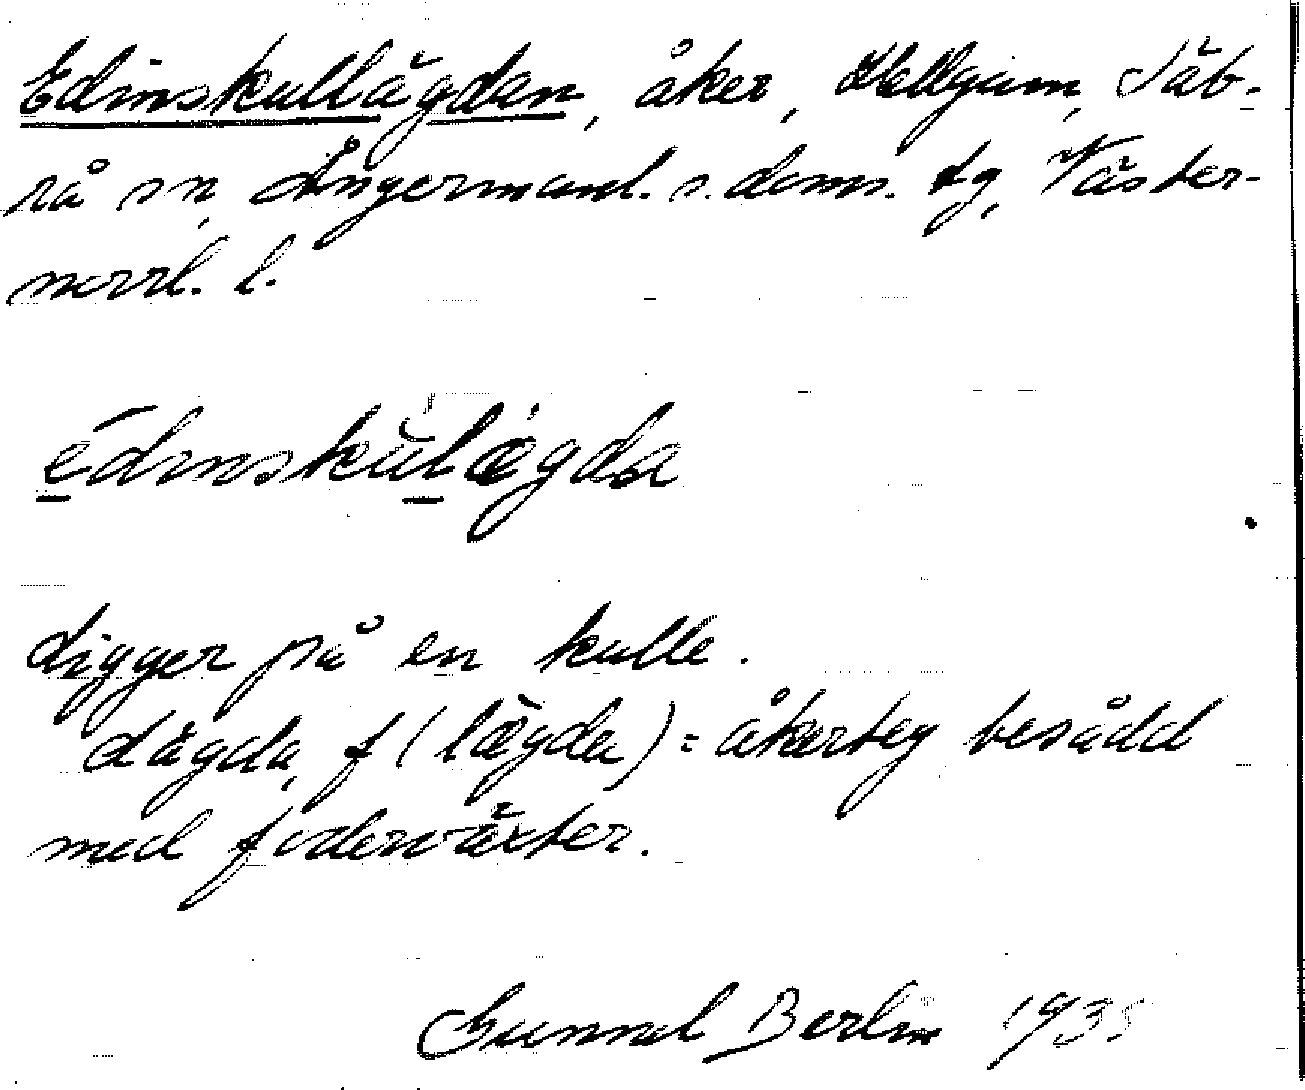 Edinskullägdan, åker, Hellgum, Säb-
rå sn, Ångermanl. s. doms. tg, Väster-
norrl. l.
édinskùlǽgda
Ligger på en kulle.
Lägda, f (lægda) = åkerteg besådd
med foderväxter.
Gunnel Berlin 1935